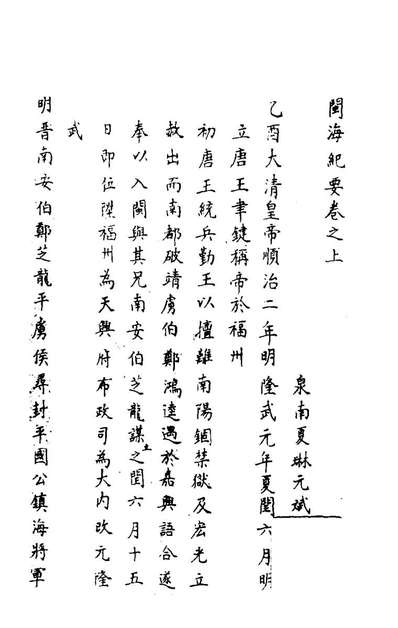 閩海紀要卷之上
泉南夏琳元斌
乙酉大清皇帝順治二年明隆武元年夏閏六月明
立唐王聿鍵稱帝於福州
初唐王統兵勤王以擅離南陽錮禁獄及宏光立
赦出而南都破靖虜伯鄭鴻逵遇於嘉興語合遂
奉以入閩與其兄南安伯芝龍謀立之閏六月十五
日即位陞福州為天興府布政司為大内改元隆
武
明晋南安伯鄭芝龍平虜侯尋封平國公鎮海將軍